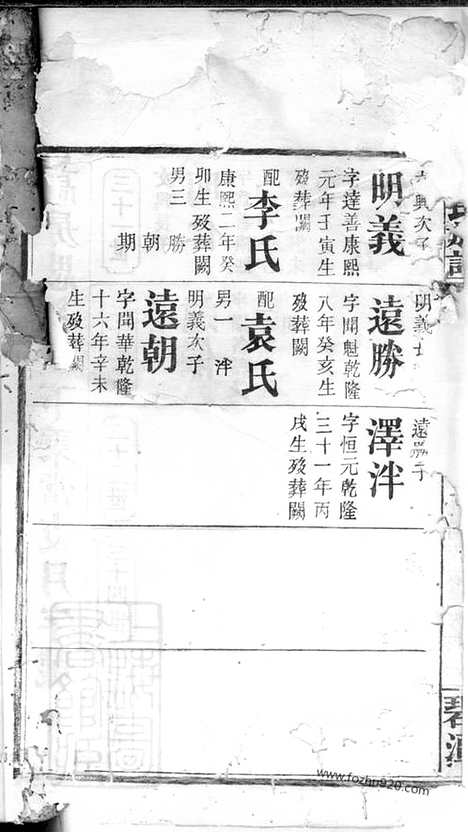 次子
明義
字達善康熙
元年壬寅生
歿葬闕
配李氏
康熙二年癸
卯生歿葬闕
男三 勝
朝
期
明義
遠勝
字聞魁乾隆
八年癸亥生
歿葬闕
配袁氏
男一 泮
明義次子
遠朝
字聞華乾隆
十六年辛未
生歿葬闕
遠勝子
澤泮
字恒元乾隆
三十一年丙
戌生歿葬闕
www.fozhu920.com